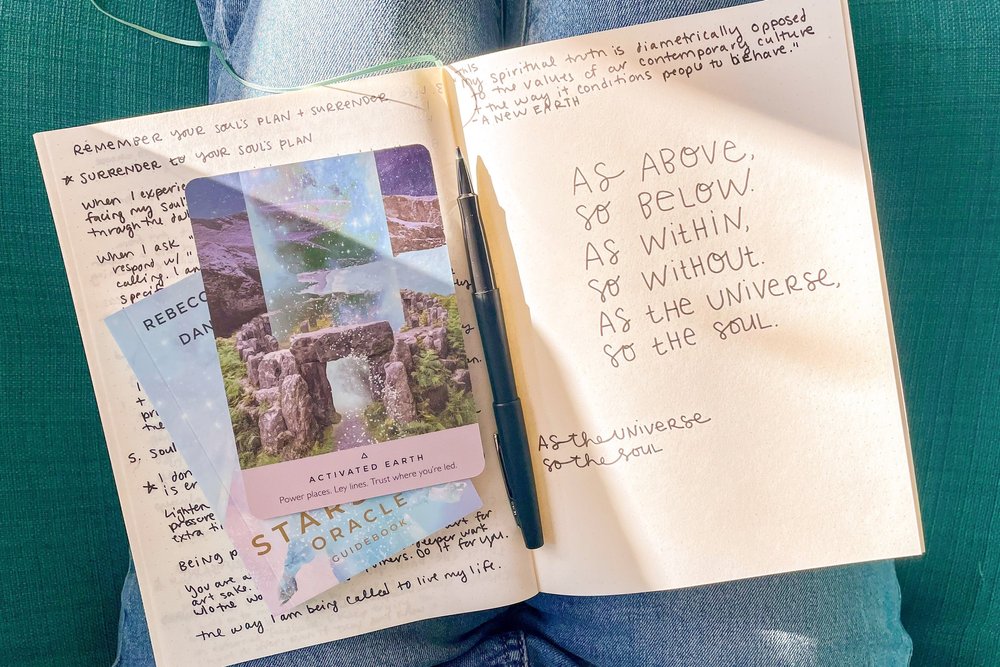 REMEMBER YOUR SOUL'S PLAN + SURRENDER
★ SURRENDER TO YOUR SOUL'S PLAN
When I experie
facing my soul
through the da
When I ask "
respond w/ "
calling. I am
REBECC
DAN
5. Soul
★ I don
is en
Lighten
pressure
extra ti
BEING P
You are a
art sake.
deeper work
Do it for you.
w/o the wo
the way I am being called to live my life.
ACTIVATED EARTH
Power places. Ley lines. Trust where you're led.
ORACLE
GUIDEBOOK
This
My spiritual truth is diametrically opposed
to the values of our contemporary culture
+ the way it conditions people to behave."
-A NEW EARTH
AS ABOVE,
SO BELOW.
AS WITHIN,
SO WITHOUT.
AS the UNIVERSE,
SO the SOUL.
AS the UNIVERSE
SO the SOUL